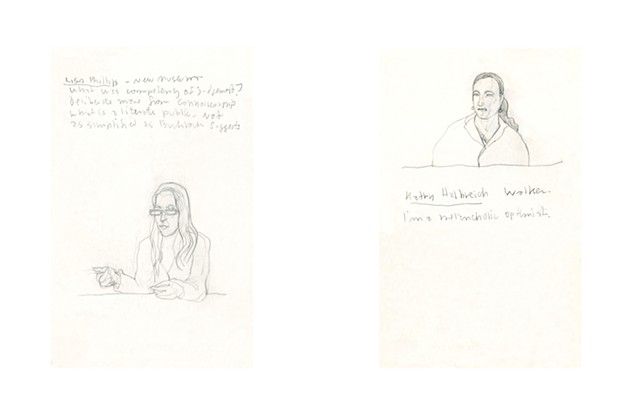 Lisa Phillips - New Museum
what is competency of judgement?
deliberate move from connoisseurship
what is a literate public. Not
as simplified as Buchloh suggests
Kathy Halbreich Walker.
I'm a melancholic optimist.